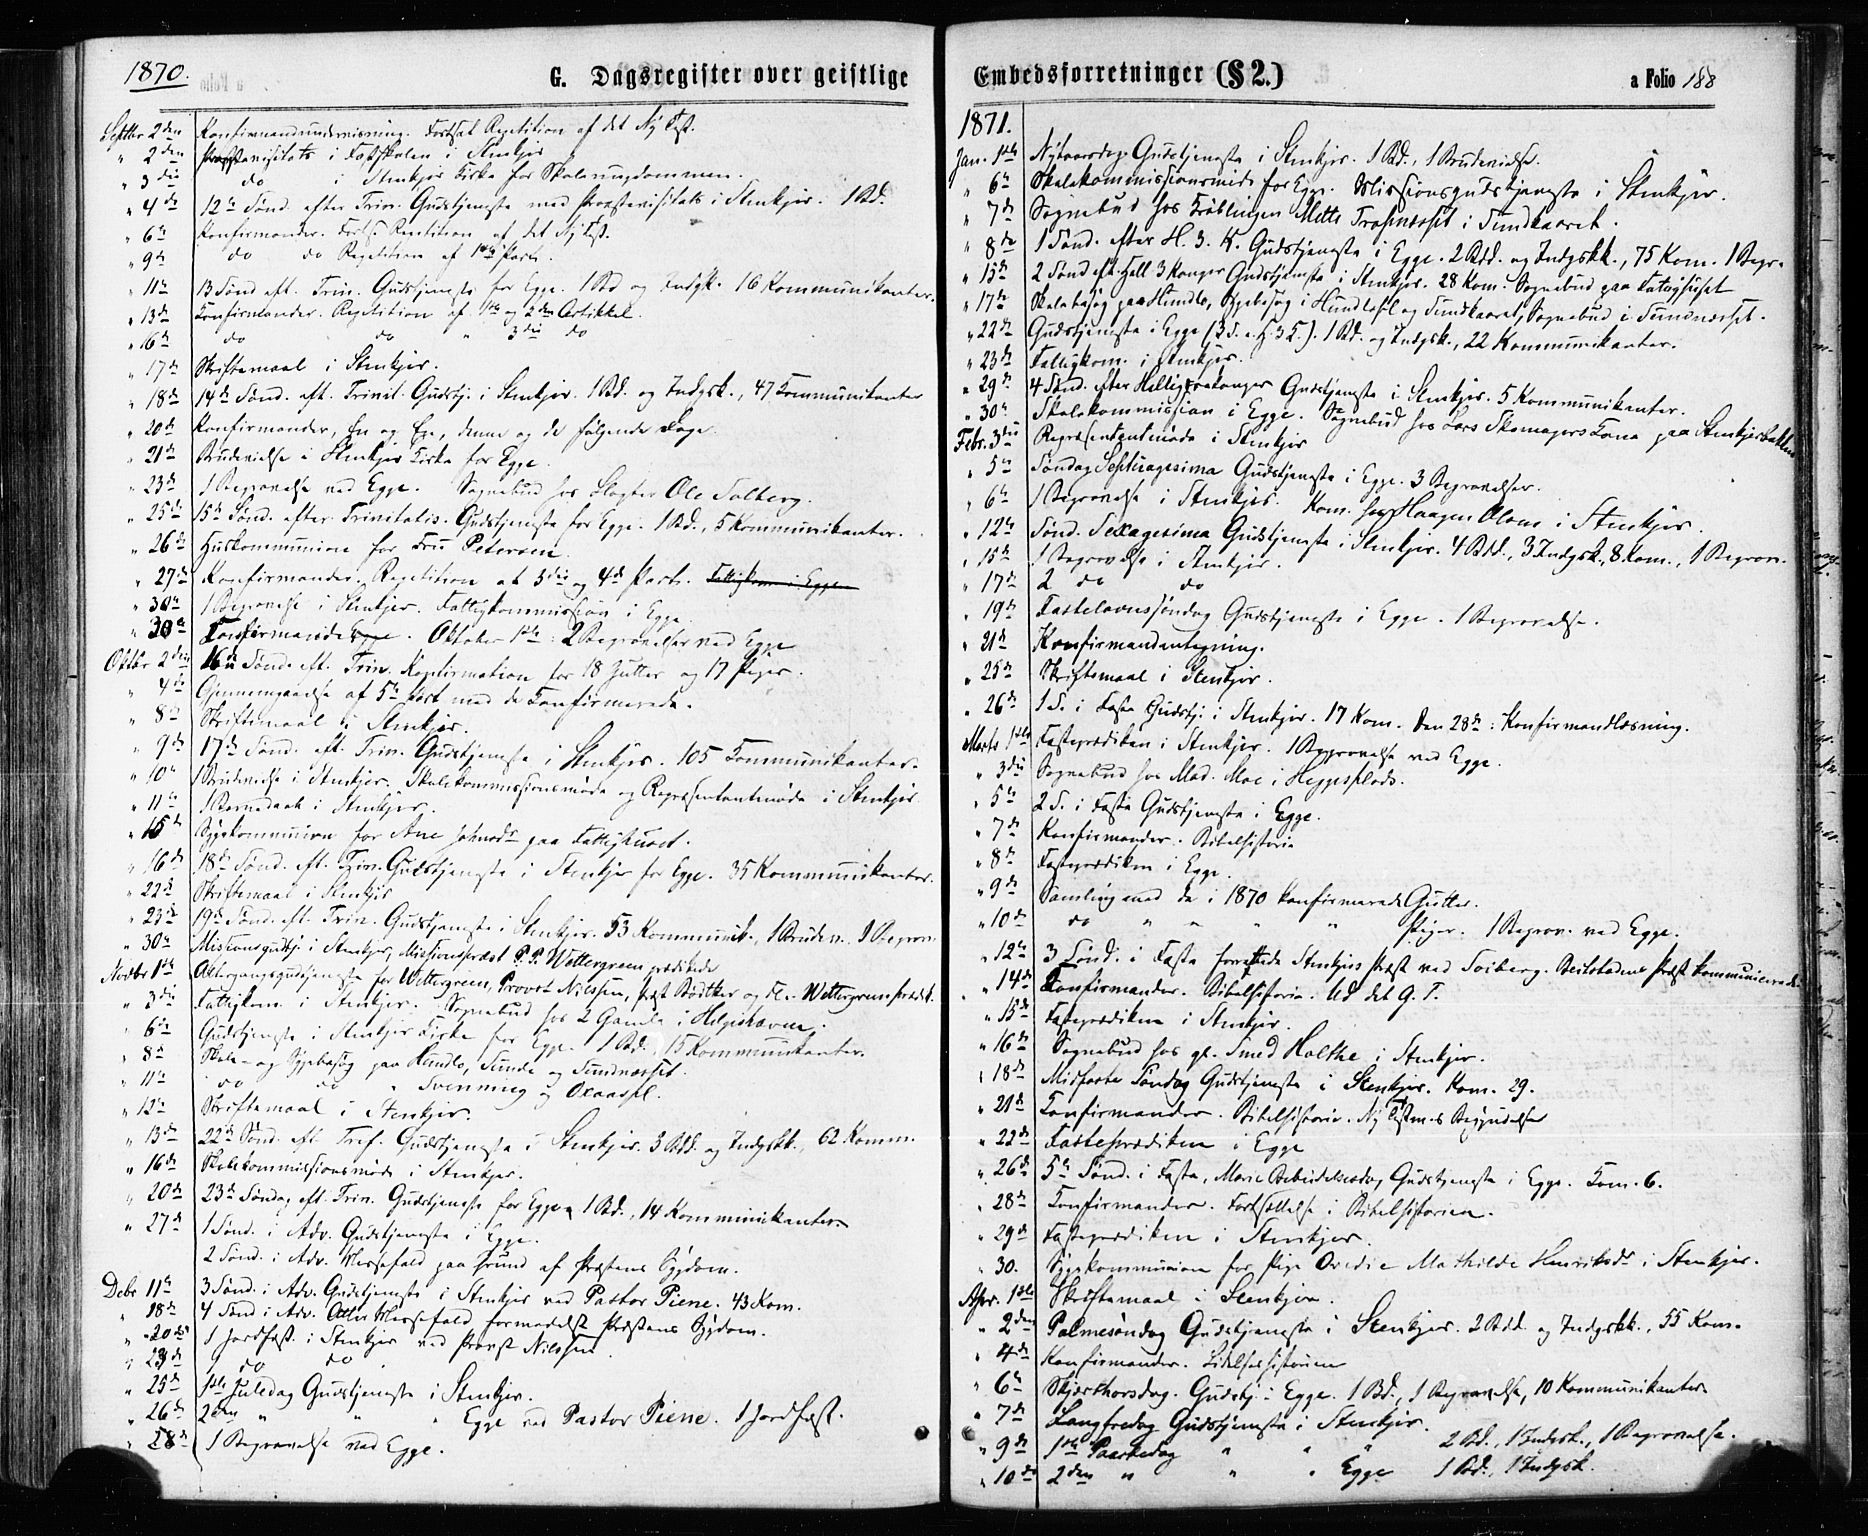 1870.
G. Dagsregister over geistlige
Septbr 2den Konfirmandundervisning. Fortsat Repetition af det Ny Test.
" 2den Præstevisitats i Fastskolen i Stenkjær
" 3die do i Stenkjær Kirke for Skoleungdommen.
" 4de 12te Sønd. efter Trin. Gudstjeneste med Præstevisitats i Stenkjær. 1 Bd.
" 6te Konfirmander. Forts. Repetition af det Ny Test.
" 9de do do Repetition af 1ste Part.
" 11te 13 Sønd eft. Trin. Gudstjeneste for Egge. 1 Bd og Indgsk. 16 Kommunikanter.
" 13de Konfirmander. Repetition af 1ste og 2den Artikkel.
" 16de do do " 3die do
" 17de Skriftemaal i Stenkjær.
" 18de 14de Sønd. eft. Trinit. Gudstj. i Stenkjær. 1 Bd. og Indgsk., 47 Kommunikanter
" 20de Konfirmander, denne og de følgende Dage.
" 21de Brudevielse i Stenkjær Kirke for Egge.
" 23de 1 Begravelse ved Egge. Sognebud hos Slagter Ole Solberg.
" 25de 15de Sønd. efter Trinitatis. Gudstjeneste for Egge. 1 Bd., 5 Kommunikanter.
" 26de Huskommunion for Fru Petersen.
" 27de Konfirmander. Repetition af 3die og 4de Part. Fattigkom i Egge
" 30te 1 Begravelse i Stenkjær. Fattigkommission i Egge.
" 30te Konfirmander Egge. Oktober 1ste: 2 Begravelser ved Egge
Oktbr 2den 16de Sønd. eft. Trin. Konfirmation for 18 Gutter og 17 Piger.
" 4de Gjennemgaaelse af 5te Part med de Konfirmerede.
" 8de Skriftemaal i Stenkjær.
" 9de 17de Sønd. eft. Trin. Gudstjeneste i Stenkjær. 105 Kommunikanter.
" 10de 1 Brudevielse i Stenkjær. Skolekommissionsmøde og Repræsentantmøde i Stenkjær
" 11te 1 Barnedaab i Stenkjær.
" 15de Sygekommunion for Ane Johnsdr paa Fattighuset.
" 16de 18de Sønd. eft. Trin. Gudstjeneste i Stenkjær for Egge. 35 Kommunikanter.
" 22de Skriftemaal i Stenkjær
" 23de 19de Sønd. eft. Trin. Gudstjeneste i Stenkjær. 53 Kommunik., 1 Brudev. 1 Begrav.
" 30te Missionsgudstj. i Stenkjær, Missionspræst P. P. Wettergreen prædikede
Novbr 1ste Aftengangsgudstjeneste for Wettergreen, Provst Nilssen, Præst Bødtker og Wettergreen
" 3die Fattigkom. i Stenkjær. Sognebud hos 2 Gamle i Helgeshavn.
" 6te Gudstjeneste i Stenkjær Kirke for Egge. 1 Bd. 15 Kommunikanter.
" 8de Skole- og Sygebesøg paa Hemlo, Sunde og Sundnæsset.
" 11te do do " Svenning og Oxaasfl.
" 12te Skriftemaal i Stenkjær.
" 13de 22de Sønd. eft. Tref. Gudstjeneste i Stenkjær. 3 Bdd. og Indgskk., 62 Komm.
" 16de Skolekommissionsmøde i Stenkjær.
" 20de 23de Søndag eft. Trin. Gudstjeneste for Egge. 1 Bd., 14 Kommunikanter
" 27de 1 Sønd. i Adv. Gudstjeneste i Egge.
2 Sønd. i Adv. Messefald paa Grund af Præstens Sygdom.
Debr 11te 3 Sønd. i Adv. Gudstjeneste i Stenkjær ved Pastor Piene. 43 Kom.
" 18de 4 Sønd i Adv. Atter Messefald formedelst Præstens Sygdom.
" 20de 1 Jordfæst. i Stenkjær ved Provst Nilssen
" 23de 1 do do
" 25de 1ste Juledag Gudstjeneste i Stenkjær.
" 26de 2den " " " Egge ved Pastor Piene. 1 Jordfæst.
" 28de 1 Begravelse ved Egge.
Embedsforretninger (§ 2.)
a Folio 188
1871.
Jan. 1ste Nytaarsdag Gudstjeneste i Stenkjær. 1 Bd., 1 Brudevielse.
" 6te Skolekommissionsmøde for Egge. Missionsgudstjeneste i Stenkjær.
" 7de Sognebud hos Mette Trosnæsset i Sundkaaret.
" 8de 1 Sønd. efter H. 3. K. Gudstjeneste i Egge. 2 Bdd. og Indgskk., 75 Kom. 1 Begr.
" 15de 2 Sønd eft. Hell 3 Konger Gudstjeneste i Stenkjær. 28 Kom. Sognebud paa Fattighuset
" 17de Skolebesøg paa Hemlo, Sygebesøg i Hemlofl og Sundkaaret, Sognebud i Sundnæsset.
" 22de Gudstjeneste i Egge (3 S. e. H. 3 K.). 1 Bd. og Indgsk., 22 Kommunikanter.
" 23de Fattigkom. i Stenkjær.
" 29de 4 Sønd. efter Helligtrekonger Gudstjeneste i Stenkjær. 5 Kommunikanter.
" 30te Skolekommission i Egge. Sognebud hos Lars Skomagers Kone paa Stenkjærbakken
Febr. 3die Repræsentantmøde i Stenkjær
" 5te Søndag Septuagesima Gudstjeneste i Egge. 3 Begravelser.
" 6te 1 Begravelse i Stenkjær. Kom. hos Haagen Olsens i Stenkjær.
" 12te Sønd. Sexagesima Gudstjeneste i Stenkjær. 4 Bdd., 3 Indgsk., 8 Kom., 1 Begrav.
" 15de 1 Begravelse i Stenkjær.
" 17de 2 do do
" 19de Fastelavnssøndag Gudstjeneste i Egge. 1 Begravelse.
" 21de Konfirmandantegning.
" 25de Skriftemaal i Stenkjær.
" 26de 1 S. i Faste Gudstj. i Stenkjær. 17 Kom. Den 28de: Konfirmandlæsning.
Marts 1ste Fasteprædiken i Stenkjær. 1 Begravelse ved Egge.
" 3die Sognebud hos Mad. Moe i Heggesplads.
" 5te 2 S. i Faste Gudstjeneste i Egge.
" 7de Konfirmander. Bibelhistorie
" 8de Fasteprædiken i Egge.
" 9de Samling med de i 1870 konfirmerede Gutter.
" 10de do " " " " Piger. 1 Begrav. ved Egge.
" 12te 3 Sønd. i Faste forrettede Stenkjærs Præst ved Solberg. Beitstadens Præst kommunicerede.
" 14de Konfirmander. Bibelhistorie. Ud det G. T.
" 15de Fasteprædiken i Stenkjær.
" 16de Sognebud hos gl. Smed Holthe i Stenkjær.
" 18de Midfaste Søndag Gudstjeneste i Stenkjær. Kom. 29.
" 21de Konfirmander. Bibelhistorie. Ny Testm.s Begyndelse
" 22de Fasteprædiken i Egge
" 26de 5te Sønd. i Faste, Mariæ Bebudelsesdag Gudstjeneste i Egge. Kom. 6.
" 28de Konfirmander. Fortsættelse i Bibelhistorien.
" 29de Fasteprædiken i Stenkjær.
" 30. Sygekommunion for Pige Ovedie Mathilde Henriksdr i Stenkjær.
Apr. 1ste Skriftemaal i Stenkjær.
" 2den Palmesøndag Gudstjeneste i Stenkjær. 2 Bdd. og Indgskk., 55 Kom.
" 4de Konfirmander. Lidelseshistorien
" 6te Skjærthorsdag. Gudstj. i Egge. 1 Bd., 1 Begravelse, 10 Kommunikanter.
" 7de Langfredag Gudstjeneste i Stenkjær.
" 9de 1ste Paaskedag " " " 2 Bd., 1 Indgsk., 1 Begravelse.
" 10de 2den " " " Egge 1 Bd., 1 Indgsk.